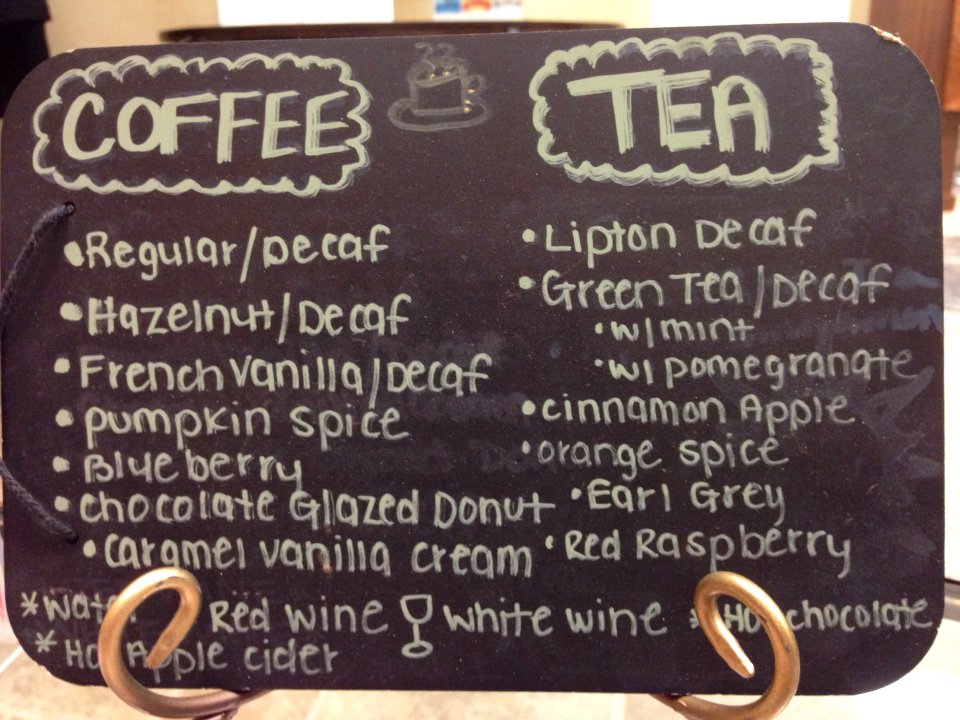 COFFEE
• Regular/Decaf
• Hazelnut/Decaf
• French Vanilla/Decaf
• Pumpkin Spice
• Blueberry
• Chocolate Glazed Donut
• Caramel Vanilla Cream
TEA
• Lipton Decaf
• Green Tea/Decaf
• w/mint
• w/pomegranate
• cinnamon Apple
• orange spice
• Earl Grey
• Red Raspberry
* Red wine White wine * chocolate
* Apple cider